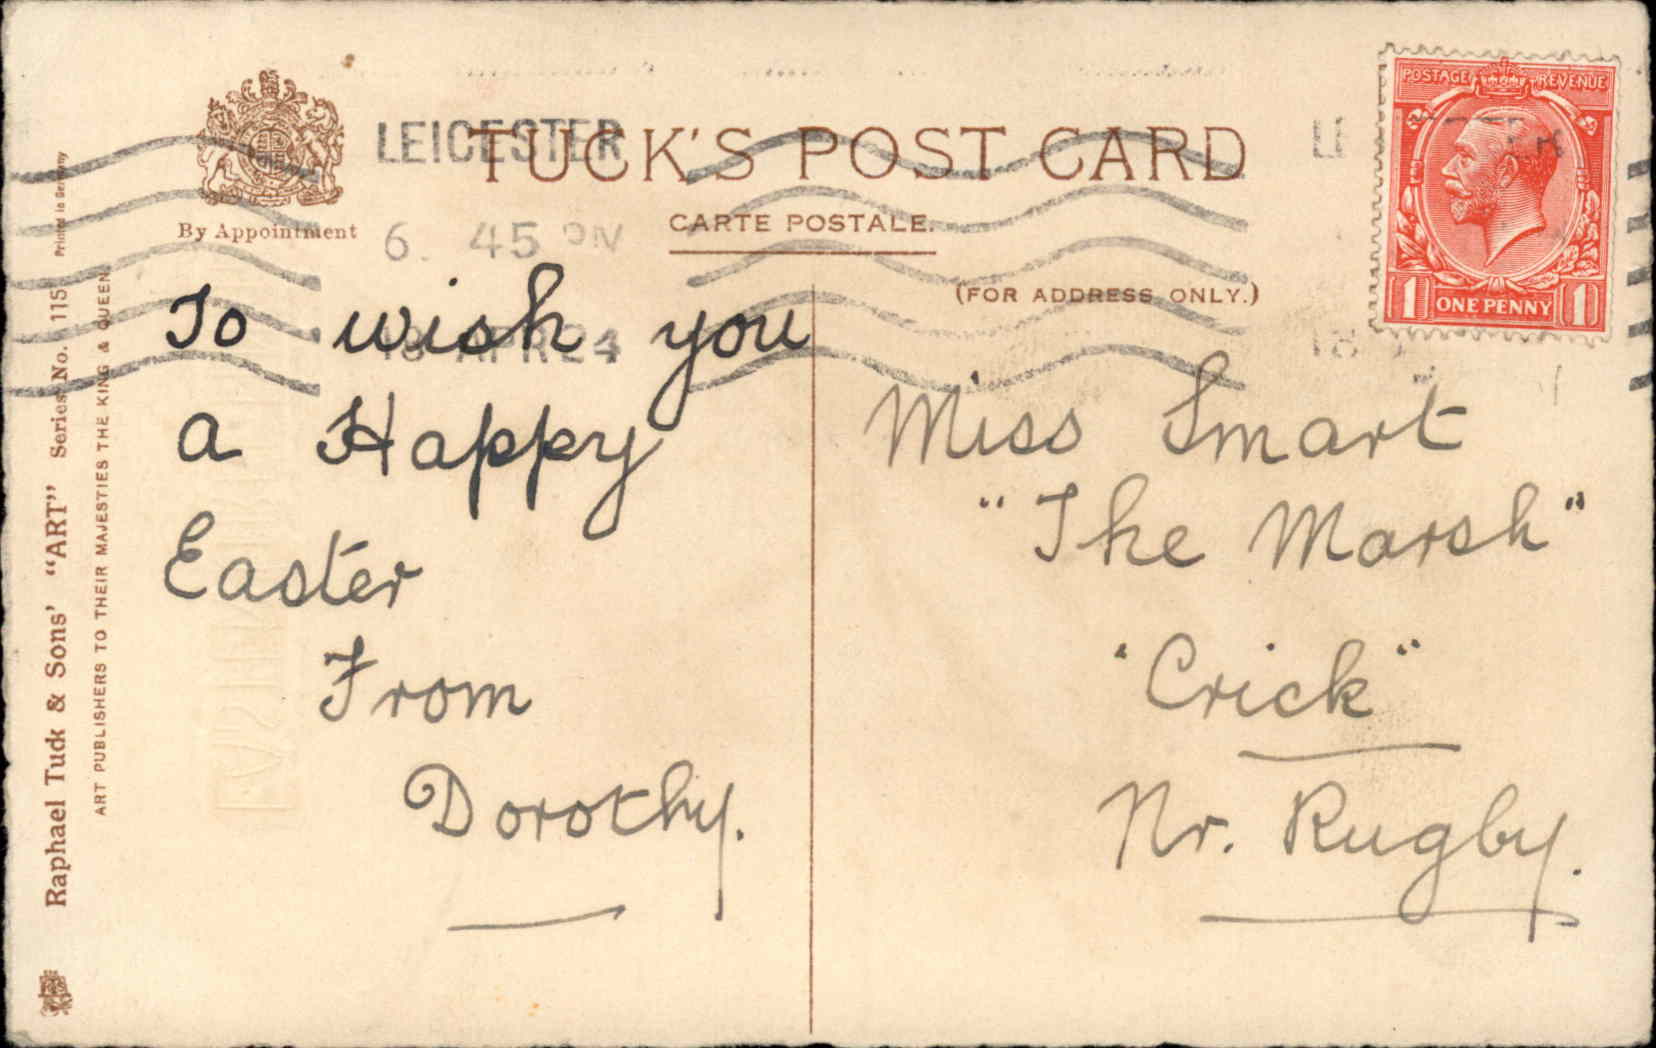 TUCK'S POST CARD
CARTE POSTALE.
(FOR ADDRESS ONLY.)
By Appointment
LEICESTER
6. 45 PM
18 APR 24
POSTAGE REVENUE
1 ONE PENNY 1
To wish you
a Happy
Easter
From
Dorothy.
Miss Smart
"The Marsh"
"Crick"
Nr. Rugby.
Raphael Tuck & Sons' "ART" Series No. 115
Printed in Germany
ART PUBLISHERS TO THEIR MAJESTIES THE KING & QUEEN